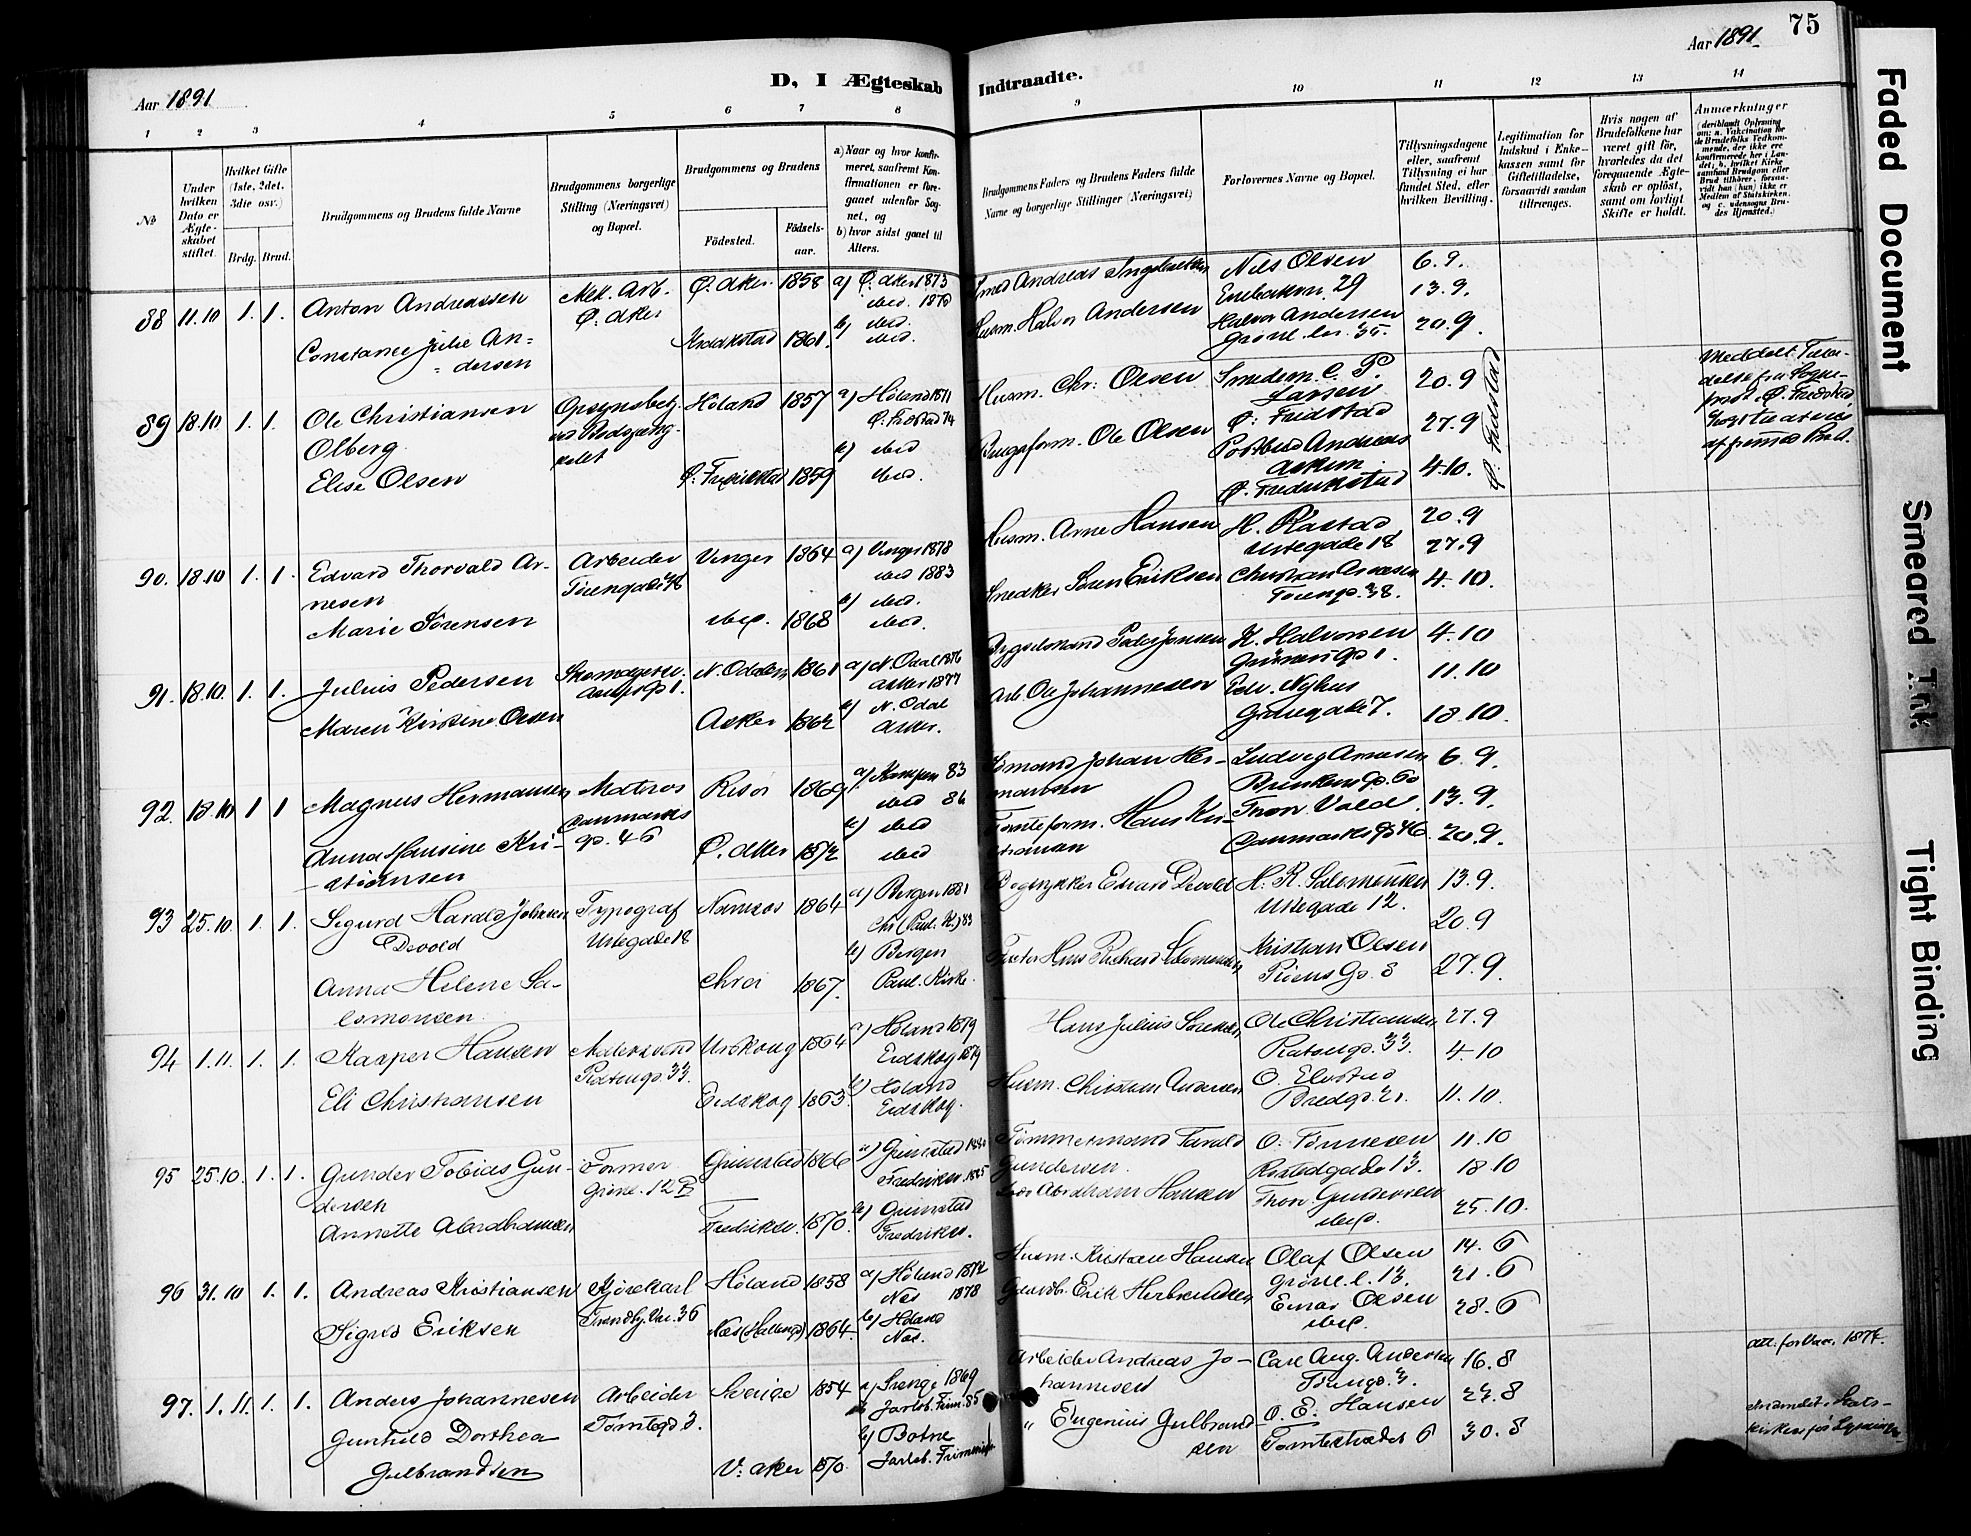 75
Aar 1891
Aar 1891
D, I Ægteskab Indtraadte.
1 2 3 4 5 6 7 8 9 10 11 12 13 14
No
Under hvilken Dato er Ægteskabet stiftet
Hvilket Gifte (1ste, 2det, 3die osv.)
Brdg. Brud.
Brudgommens og Brudens fulde Navne
Brudgommens borgerlige Stilling (Næringsvei) og Bopæl.
Brudgommens og Brudens
Födested.
Födselsaar.
a) Naar og hvor konfirmeret, saafremt Konfirmationen er foregaaet udenfor Sognet, og
b) hvor sidst gaaet til Alters.
Brudgommens Faders og Brudens Faders fulde Navne og borgerlige Stillinger (Næringsvei)
Forlovernes Navne og Bopæl.
Tillysningsdagene eller, saafremt Tillysning ei har fundet Sted, efter hvilken Bevilling.
Legitimation for Indskud i Enkekassen samt for Giftetilladelse, forsaavidt saadan tiltrænges.
Hvis nogen af Brudefolkene har været gift för, hvorledes da det foregaaende Ægteskab er oplöst, samt om lovligt Skifte er holdt.
Anmærkninger
88 11.10 1. 1. Anton Andreassen
Mek. Arb.
Ø. Aker
Ø. Aker. 1858 a) Ø. Aker 1873
ibid. 1876
Constance Julie An=
=dersen
Kraakstad 1861. b) ibid.
ibid.
Smed Andreas Ingebretsen
Husm. Halvor Andersen
Nils Olsen
Enebakkv. 29
Halvor Andersen
Grönl. ler. 35.
6.9.
13.9.
20.9.
89 18.10 1. 1. Ole Christiansen
Olberg
Elise Olsen
Höland 1857 a) Höland 1871
b) ibid
Ø. Fredrikstad 1859 ibid.
Husm. Chr: Olsen
Ole Olsen
Smedsm. C. P.
Larsen
Ø. Fredstad
Postbud Andreas
Askim
Ø. Frederikstad
20.9
27.9
4.10.
Ø. Fredstad
90. 18.10 1. 1. Edvard Thorvald Ar-
nesen
Marie Sörensen
Arbeider
Vinger 1864 a) Vinger 1878
ibid 1883
ibid. 1868 b) ibid.
ibid.
Husm. Arne Hansen
Snedker Sören Eriksen
H. Rastad
Urtegade 18
20.9
27.9
4.10.
91. 18.10. 1. 1. Julius Pedersen
Maren Kirstine Olsen
N. Odalen 1861 a) N. Odal 1876
Asker 1877
Asker 1862 b) N. Odal
Asker.
Peder Jonsen
Arb. Ole Johannesen
H. Halvorsen
4.10
11.10
18.10.
92. 18.10 1 1 Magnus Hermansen
Anna Hansine Kri-
-stiansen
Matros
Danmarks
gd. 46
Risör 1869 a) Kampen 83
ibid 86
Ø. Aker 1872 b) ibid
ibid
Johan Her-
mansen
Tomteform. Hans Kri-
stiansen
Ludvig Arnesen
Thor. Vold
Danmarks gd 46.
6.9.
13.9.
20.9.
93 25.10. 1. 1. Sigurd Harald Johnsen
Devold
Anna Helene Sa-
lomonsen
Typograf
Urtegade 18
Namsos 1864 a) Bergen 1881
Chr (Paul. K.) 83
b) Bergen
Chria 1867. Paul. Kirke.
Bogtrykker Edvard Devold
Hans Richard Salomonsen
H. R. Salomonsen
Urtegade 12.
Kristian Olsen
13.9.
20.9
27.9.
94 1.11. 1. 1. Kasper Hansen
Eli Christiansen
Malersvend
Urskoug 1864 a) Höland 1879
Eidskog 1879
Eidskog 1863. b) Höland
Eidskog.
Hans Julius Sörensen
Husm. Christian Andersen
Ole Christiansen
O. Elvestad
Bredgd. 21.
27.9
4.10
11.10.
95 25.10. 1. 1. Gunder Tobias Gun-
dersen
Annette Abrahamsen
Former
Grönl. 12 B
Grimstad 1866 a) Grimstad 1880
Fredriksv. 1885
Fredriksv. 1870. b) Grimstad
Fredriksv.
Tömmermand Tarald
Gundersen.
Abraham Hansen
O. Tönnesen
Thor Gundersen
ibid.
11.10
18.10
25.10.
96 31.10 1. 1. Andreas Kristiansen
Sigrid Eriksen
Kjörekarl
Trondhj.vn. 36
Höland 1858 a) Höland 1872
Næs 1878
Næs (Hallingd) 1864 b) Höland
Næs.
Husm. Kristian Hansen
Gaardb. Erik Herbrandsen
Olaf Olsen
Grönl. l. 13.
Einar Olsen
ibid.
14.6
21.6
28.6
97. 1.11. 1. 1. Anders Johannesen
Gunhild Dorthea
Gulbrandsen
Arbeider
Tomtegd 3.
Sverige 1854 a) Sverige 1869
Jarlsb. Frim. 85
b) Botne
V. Aker 1870.
Arbeider Andreas Jo-
hannesen
" Eugenius Gulbrand-
sen
Carl Aug. Andersen
O. E. Hansen
Tomtestrædet 6
16.8
23.8
30.8
Att. for Vac. 1874.
Faded Document
Smeared Ink
Tight Binding